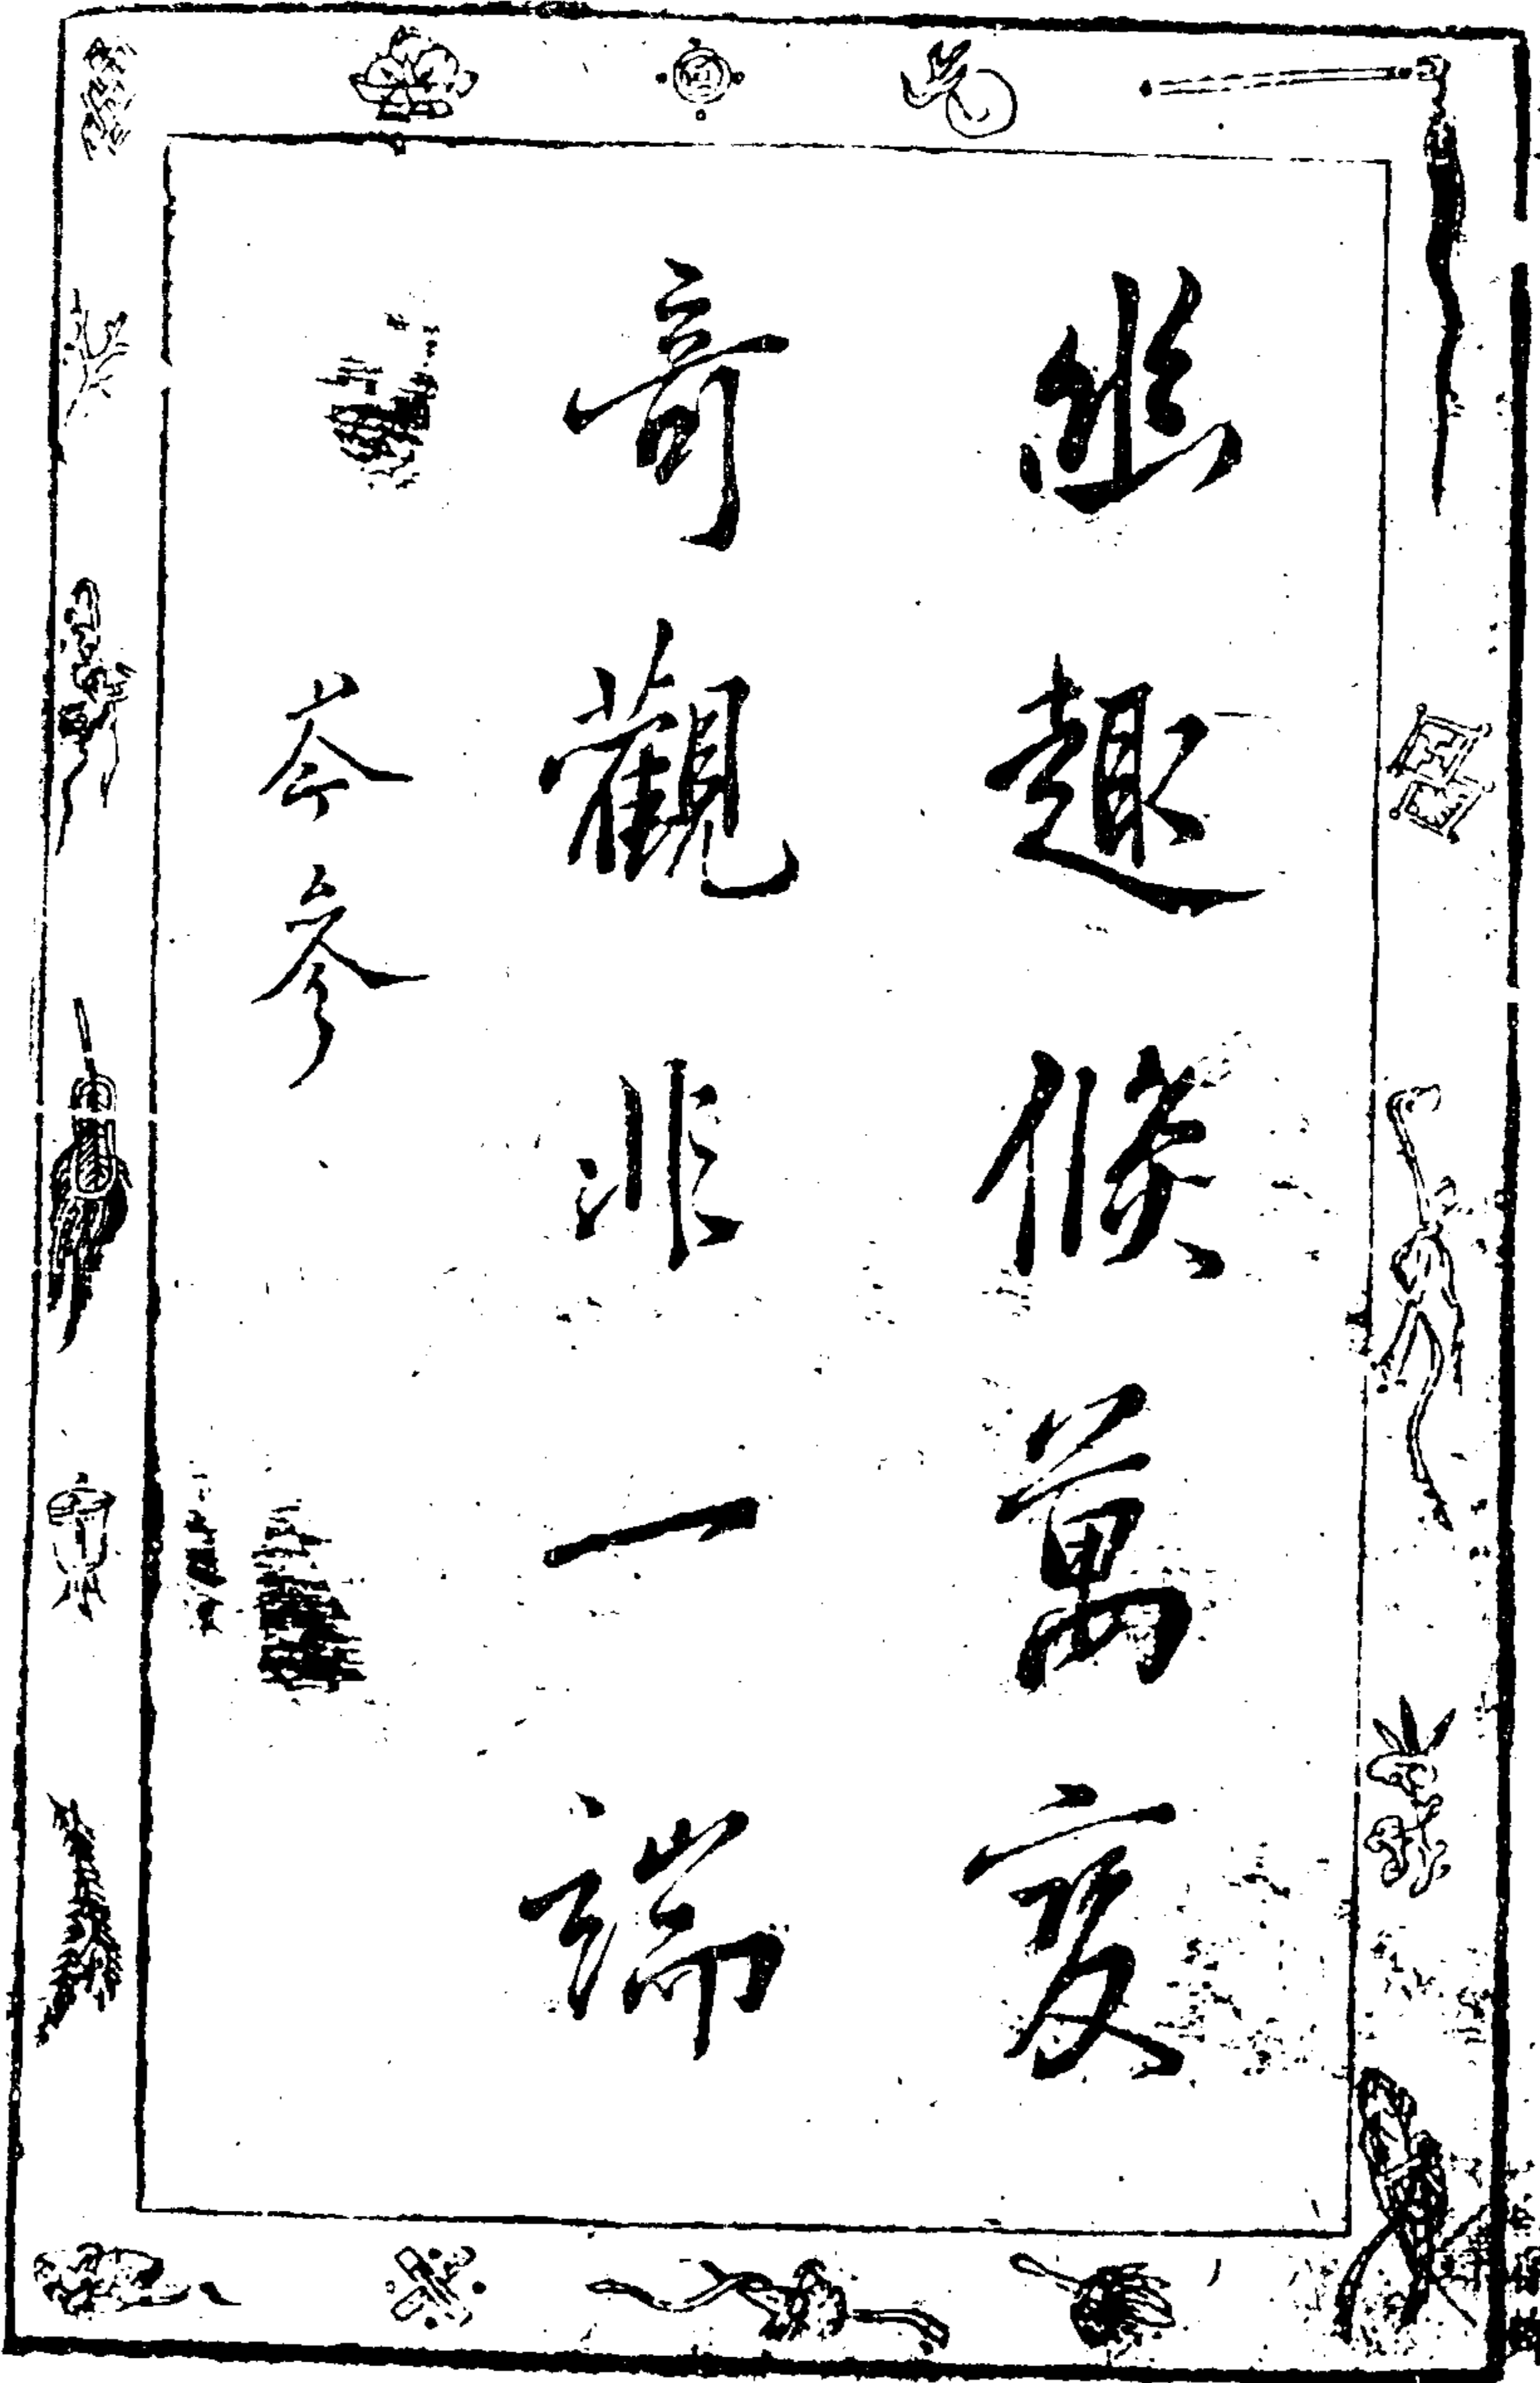 幽趣倐萬变
奇觀非一端
岑參